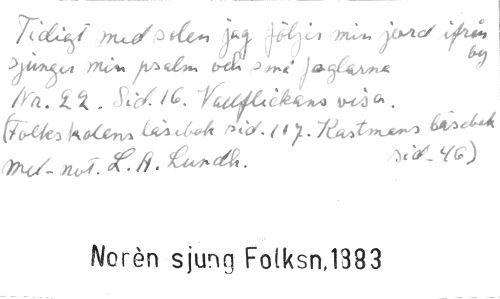 Tidigt med solen jag följer min jord ifrån by
sjunger min psalm och små foglarna
Nr. 22. Sid. 16. Vallflickans visa.
(Folkskolans läsebok sid. 117. Kastmans läsebok sid. 46)
mel-not. L. A. Lundh.
Norèn sjung Folksn,1883